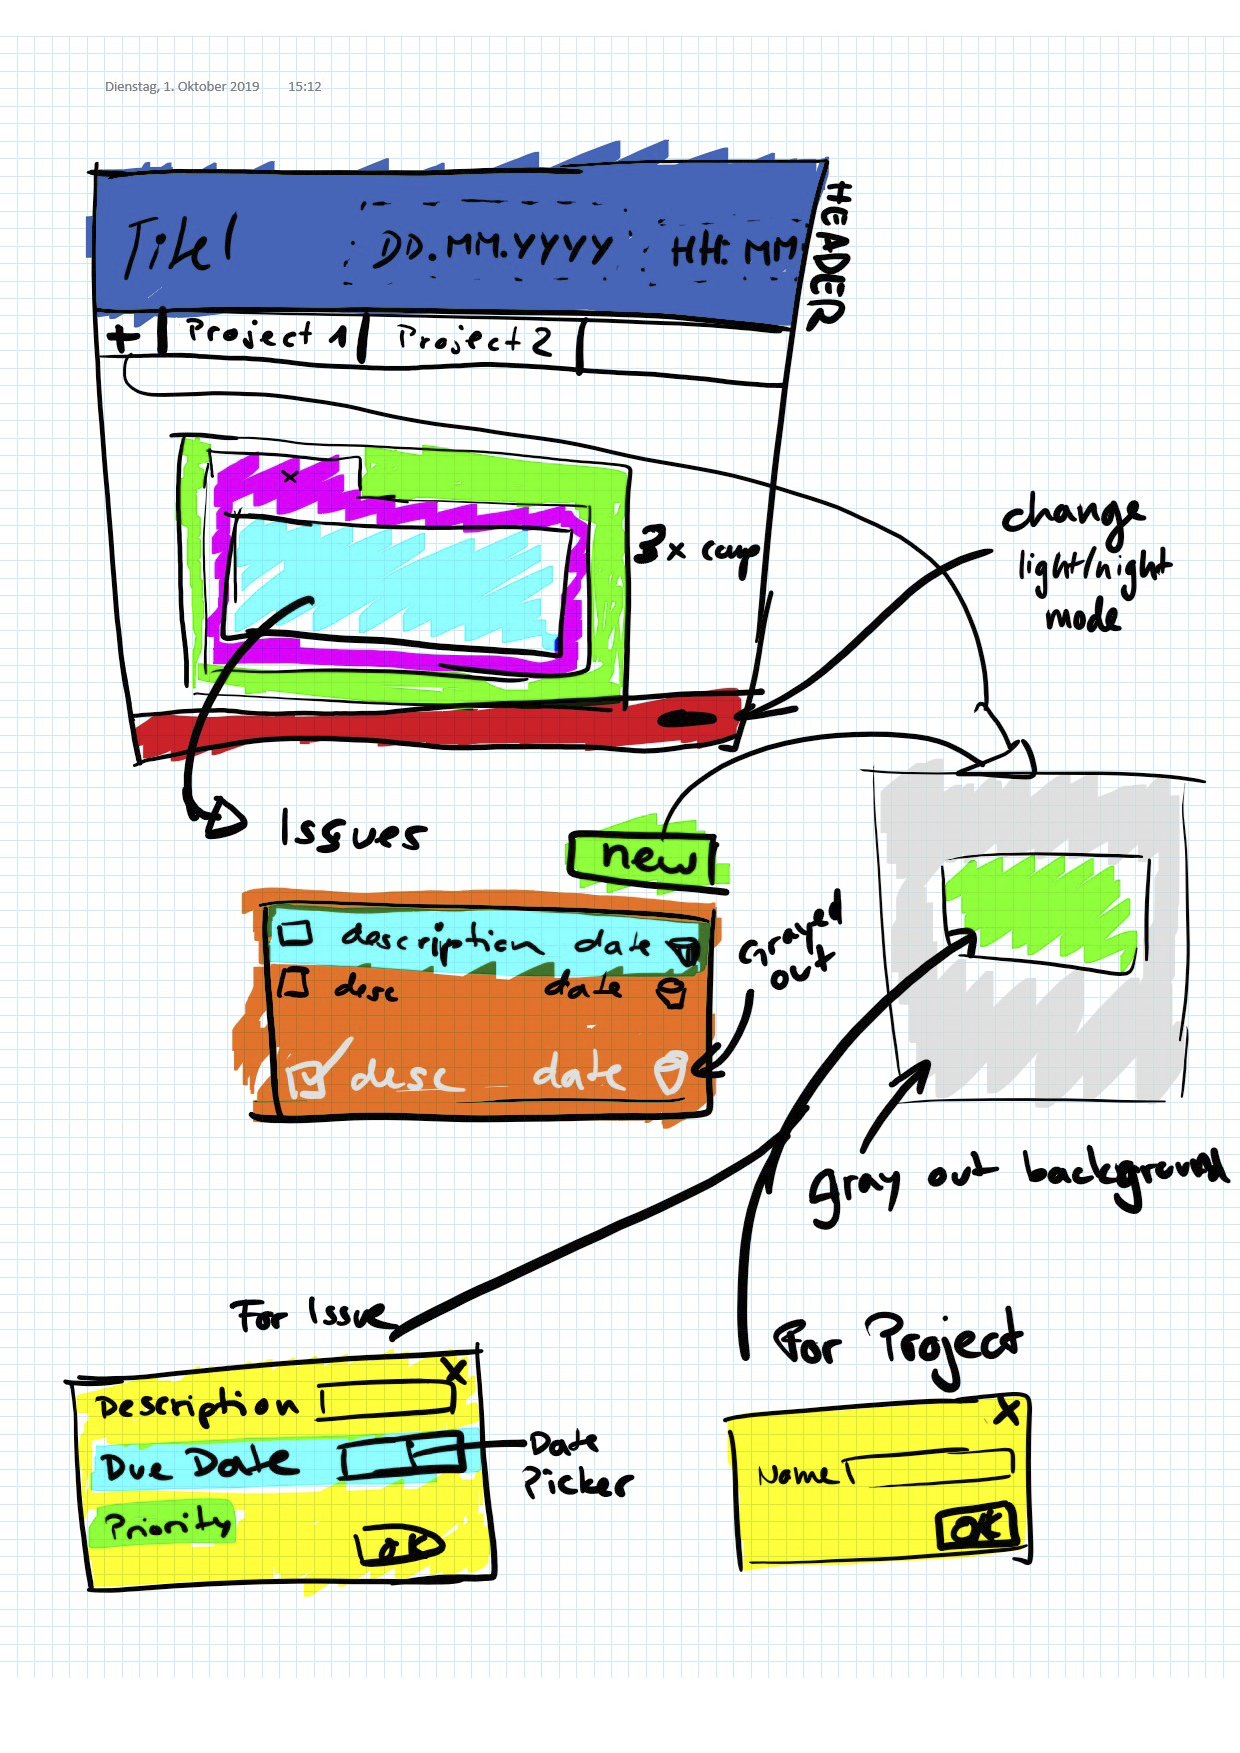 Dienstag, 1. Oktober 2019 15:12
Titel DD.MM.YYYY HH:MM
HEADER
+ Project 1 Project 2
x
3x
change
light/night
mode
Issues
new
description date
desc date
desc date
Grayed
out
gray out background
For Issue
X
Description
Due Date
Date
Picker
Priority
OK
For Project
X
Name
OK